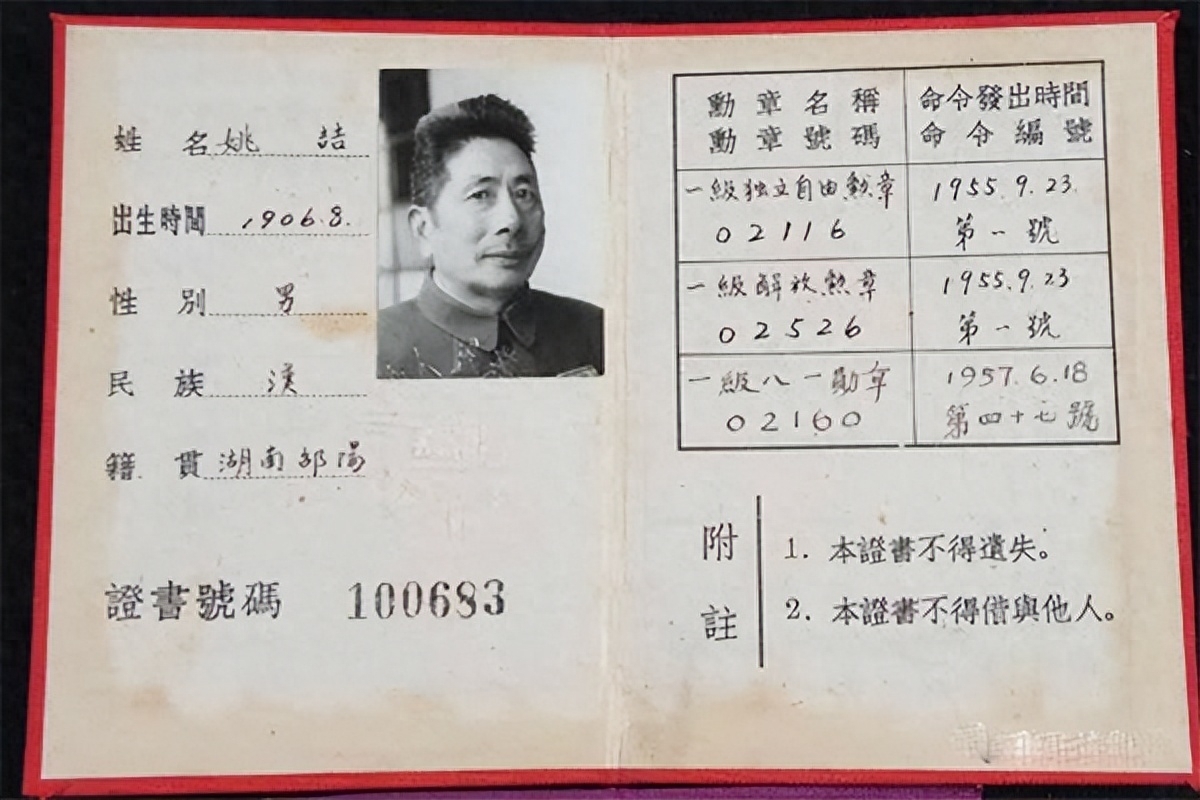 姓 名 姚 喆
出生時間 1906.8.
性 別 男
民 族 漢
籍 貫 湖南邵陽
證書號碼 100683
勳章名稱 命令發出時間
勳章號碼 命令編號
一級独立自由勲章 1955.9.23.
02116 第一號
一級解放勲章 1955.9.23
02526 第一號
一級八一勛章 1957.6.18
02160 第四十七號
附註
1. 本證書不得遺失。
2. 本證書不得借與他人。